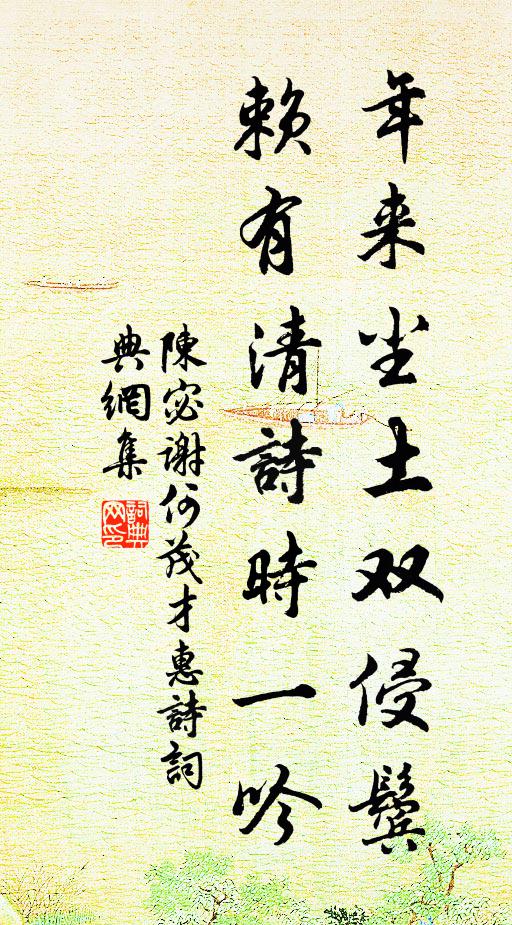 年来尘土双侵鬓
賴有清詩時一吟
陳宓谢何茂才惠詩詞
典網集
詞典
网印